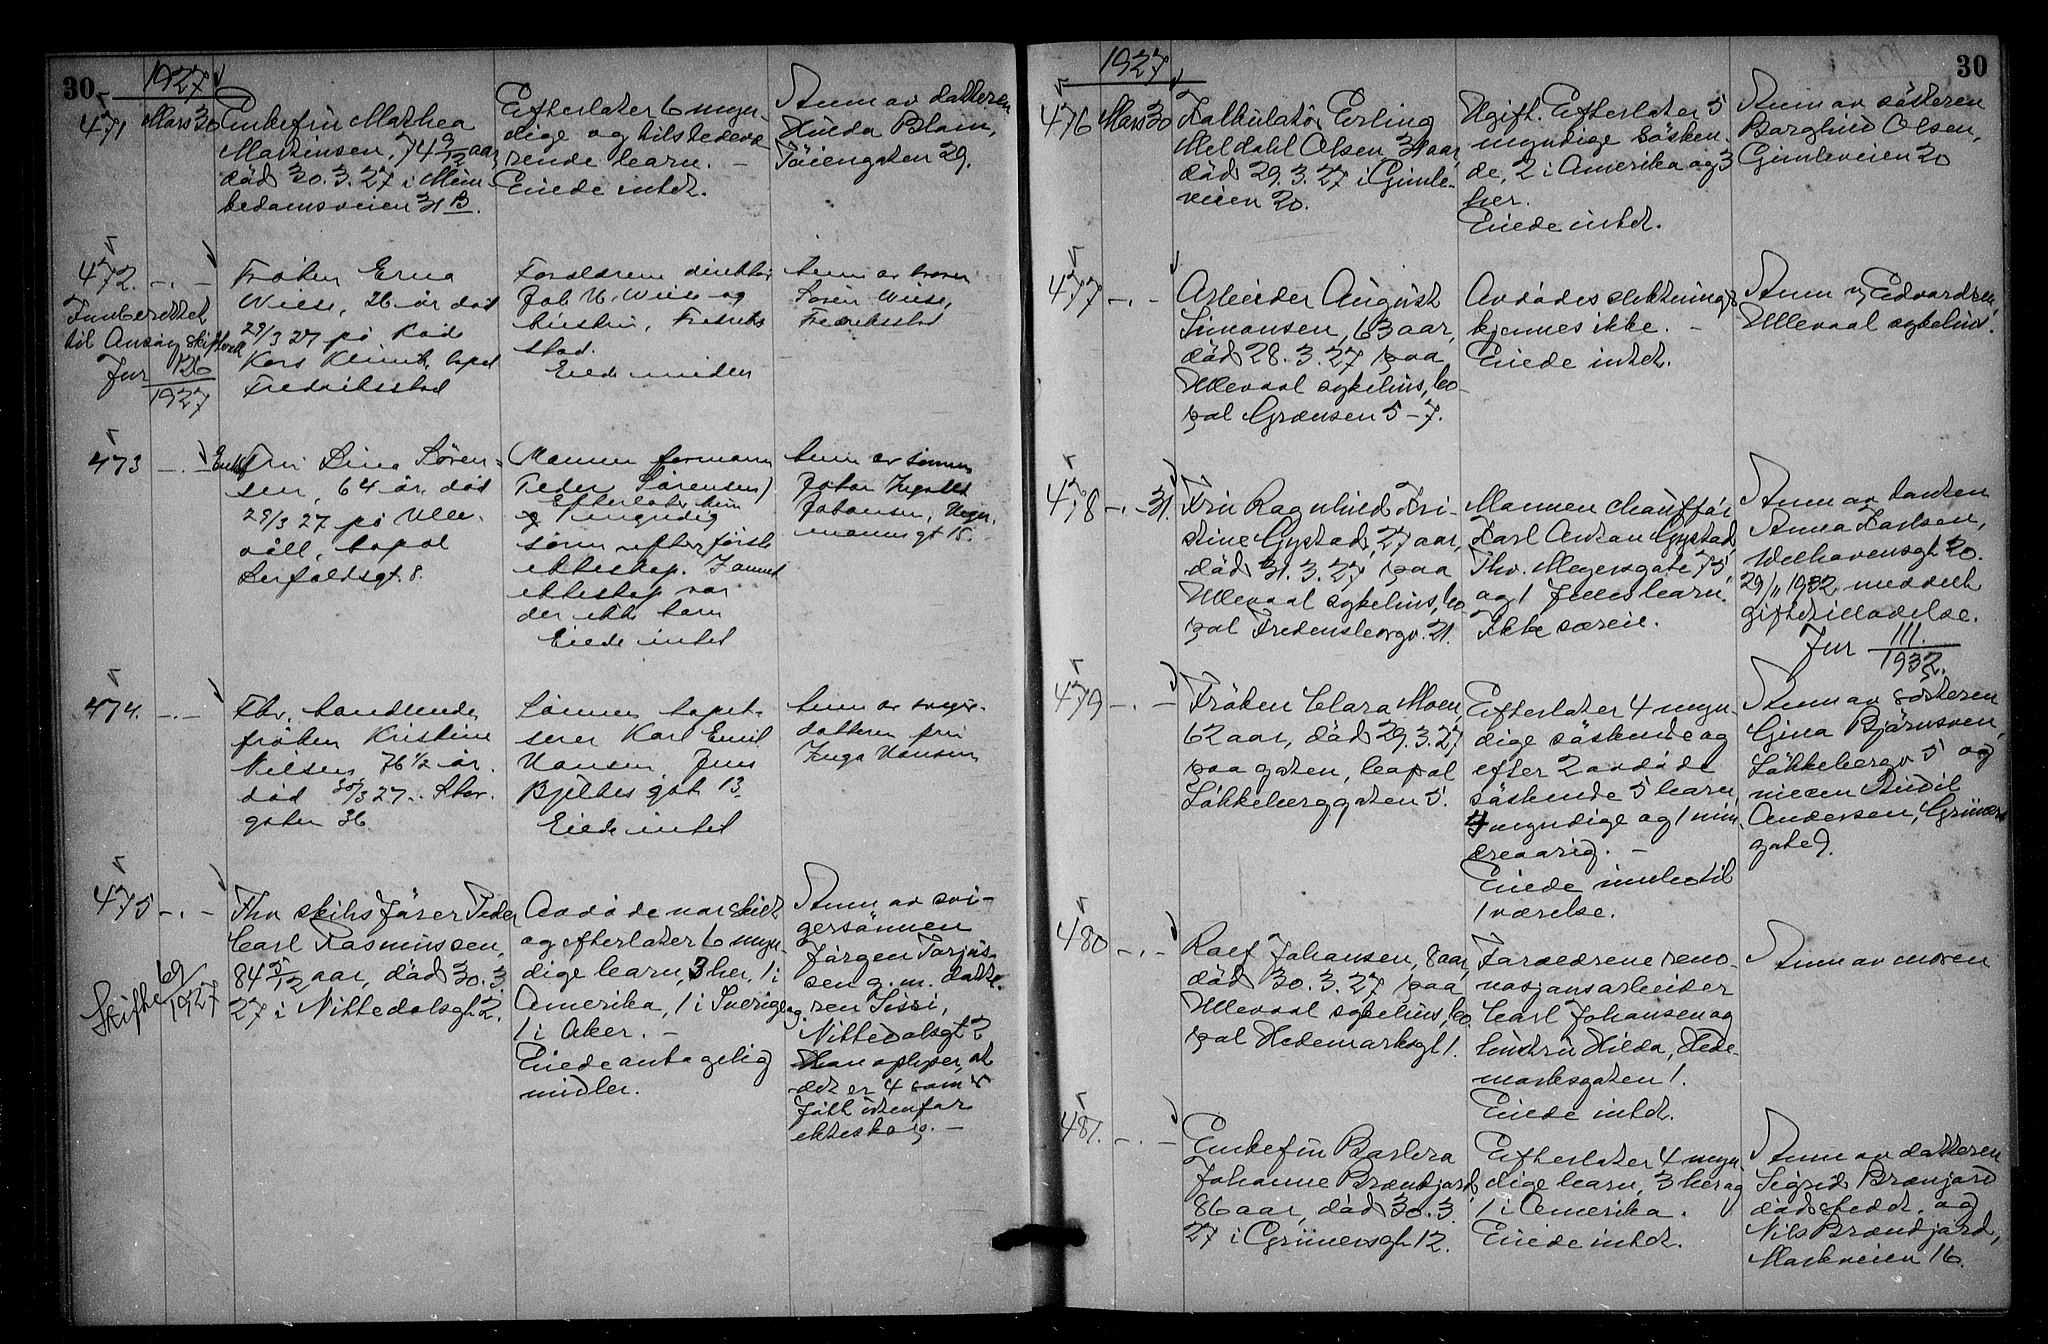 30
1927
471
Mars 30
Enkefru Mathea
Martinsen, 74 9/12 aar
død 30.3.27 i Mun-
kedamsveien 31 B.
Efterlater 6 myn-
dige og tilstedevæ
rende barn. –
Eiede intet.
Anm av datteren
Hulda Blom,
Töiengaten 29.
472. -.-
Innberettet
til Onsøy skifterett
Jnr 126
1927
Frøken Erna
Wiese, 26 år død
29/3 27 på Røde
Kors Klinik, bopel
Fredriksstad
Foreldrene direktør
Joh. H. Wiese og
hustru, Fredriks
stad.
Eiede midler
Anm av broren
Søren Wiese,
Fredriksstad
473 -.-
Enkef
Fru Lina Søren-
sen, 64 år, død
29/3 27 på Ulle-
våll, bopel
Herfoldsgt. 8.
(Mannen formann
Peder Sørensen)
Efterlater hun
1 myndig
sønn efter første
ekteskap. I annet
ekteskap var
der ikke barn
Eiede intet
Anm av sønnen
Johan Ingvald
Johansen, Hegermannsgt 15.
474. -.-
Fhv. handlende
frøken Kristine
Nilsen, 76 1/2 år.
død 30/3 27. Stor-
gaten 36
Sønnen tapet-
serer Karl Emil
Hansen, Jens
Bjelkes gate 13.
Eiede intet
Anm av sviger-
datteren fru
Inga Hansen
475 -.-
Skifte 69/1927
Fhv skibsfører Peder
Carl Rasmussen,
84 5/12 aar, död 30.3.
27 i Nittedalsgt. 2.
Avdöde var skilt
og efterlater 6 myn-
dige barn, 3 her, 1 i
Amerika, 1 i Sverige og
1 i Aker. –
Eiede antagelig
midler.
Anm av svi-
gersönnen
Jörgen Torjus-
sen g. m. datte-
ren Sissi,
Nittedalsgt 2
Han oplyser, at
det er 4 som er
født utenfor
ekteskap. –
30
1927
476 Mars 30
Kalkulatör Erling
Meldahl Olsen 31 aar,
död 29.3.27 i Gimle-
veien 20.
Ugift. Efterlater 5
myndige søsken-
de, 2 i Amerika og 3
her.
Eiede intet.
Anm av søsteren
Borghild Olsen,
Gimleveien 20
477 -.-
Arbeider August
Simonsen, 63 aar,
død 28.3.27 paa
Ullevaal sykehus, bo-
pæl Grænsen 5-7.
Avdödes slektninger
kjennes ikke. –
Eiede intet.
Anm v Edvardsen
Ullevaal sykehus.
478 -.- 31.
Fru Ragnhild Kri-
stine Gystad, 27 aar,
död 31.3.27 paa
Ullevaal sykehus, bo-
pæl Fredensborgv. 21.
Mannen chauffør
Karl Anton Gystad,
Thv. Meyersgate 75,
og 1 felles barn.
Ikke særeie.
Anm av tanten
Anna Karlsen,
Welhavensgt 20.
29/11 1932 meddelt
giftetilladelse.
Jnr 111.
1932.
479 -.-
Fröken Clara Moen,
62 aar, död 29.3.27
paa gaten, bopæl
Løkkeberggaten 5.
Efterlater 4 myn-
dige søskende og
efter 2 avdöde
søskende 5 barn,
4 myndige og 1 min-
dreaarig. –
Eiede innbo til
1 værelse.
Anm av søsteren
Gina Bjørnsen,
Løkkebergv 5 og
niesen Bodil
Andersen, Grüners
gate 9.
480 -.-
Rolf Johansen, 8 aar,
död 30.3.27 paa
Ullevaal sykehus, bo-
pæl Hedemarksgt 1.
Forældrene reno-
vasjonsarbeider
Carl Johansen og
hustru Hilda, Hede-
marksgaten 1.
Eiede intet.
Anm av moren
481. -.-
Enkefru Barbra
Johanne Brændjord
86 aar, död 30.3.
27 i Grünersgt. 12.
Efterlater 4 myn-
dige barn, 3 her og
1 i Amerika.
Eiede intet.
Anm av datteren
Sigrid Brænjord
dödsstedet, og
Nils Brændjord,
Markveien 16.